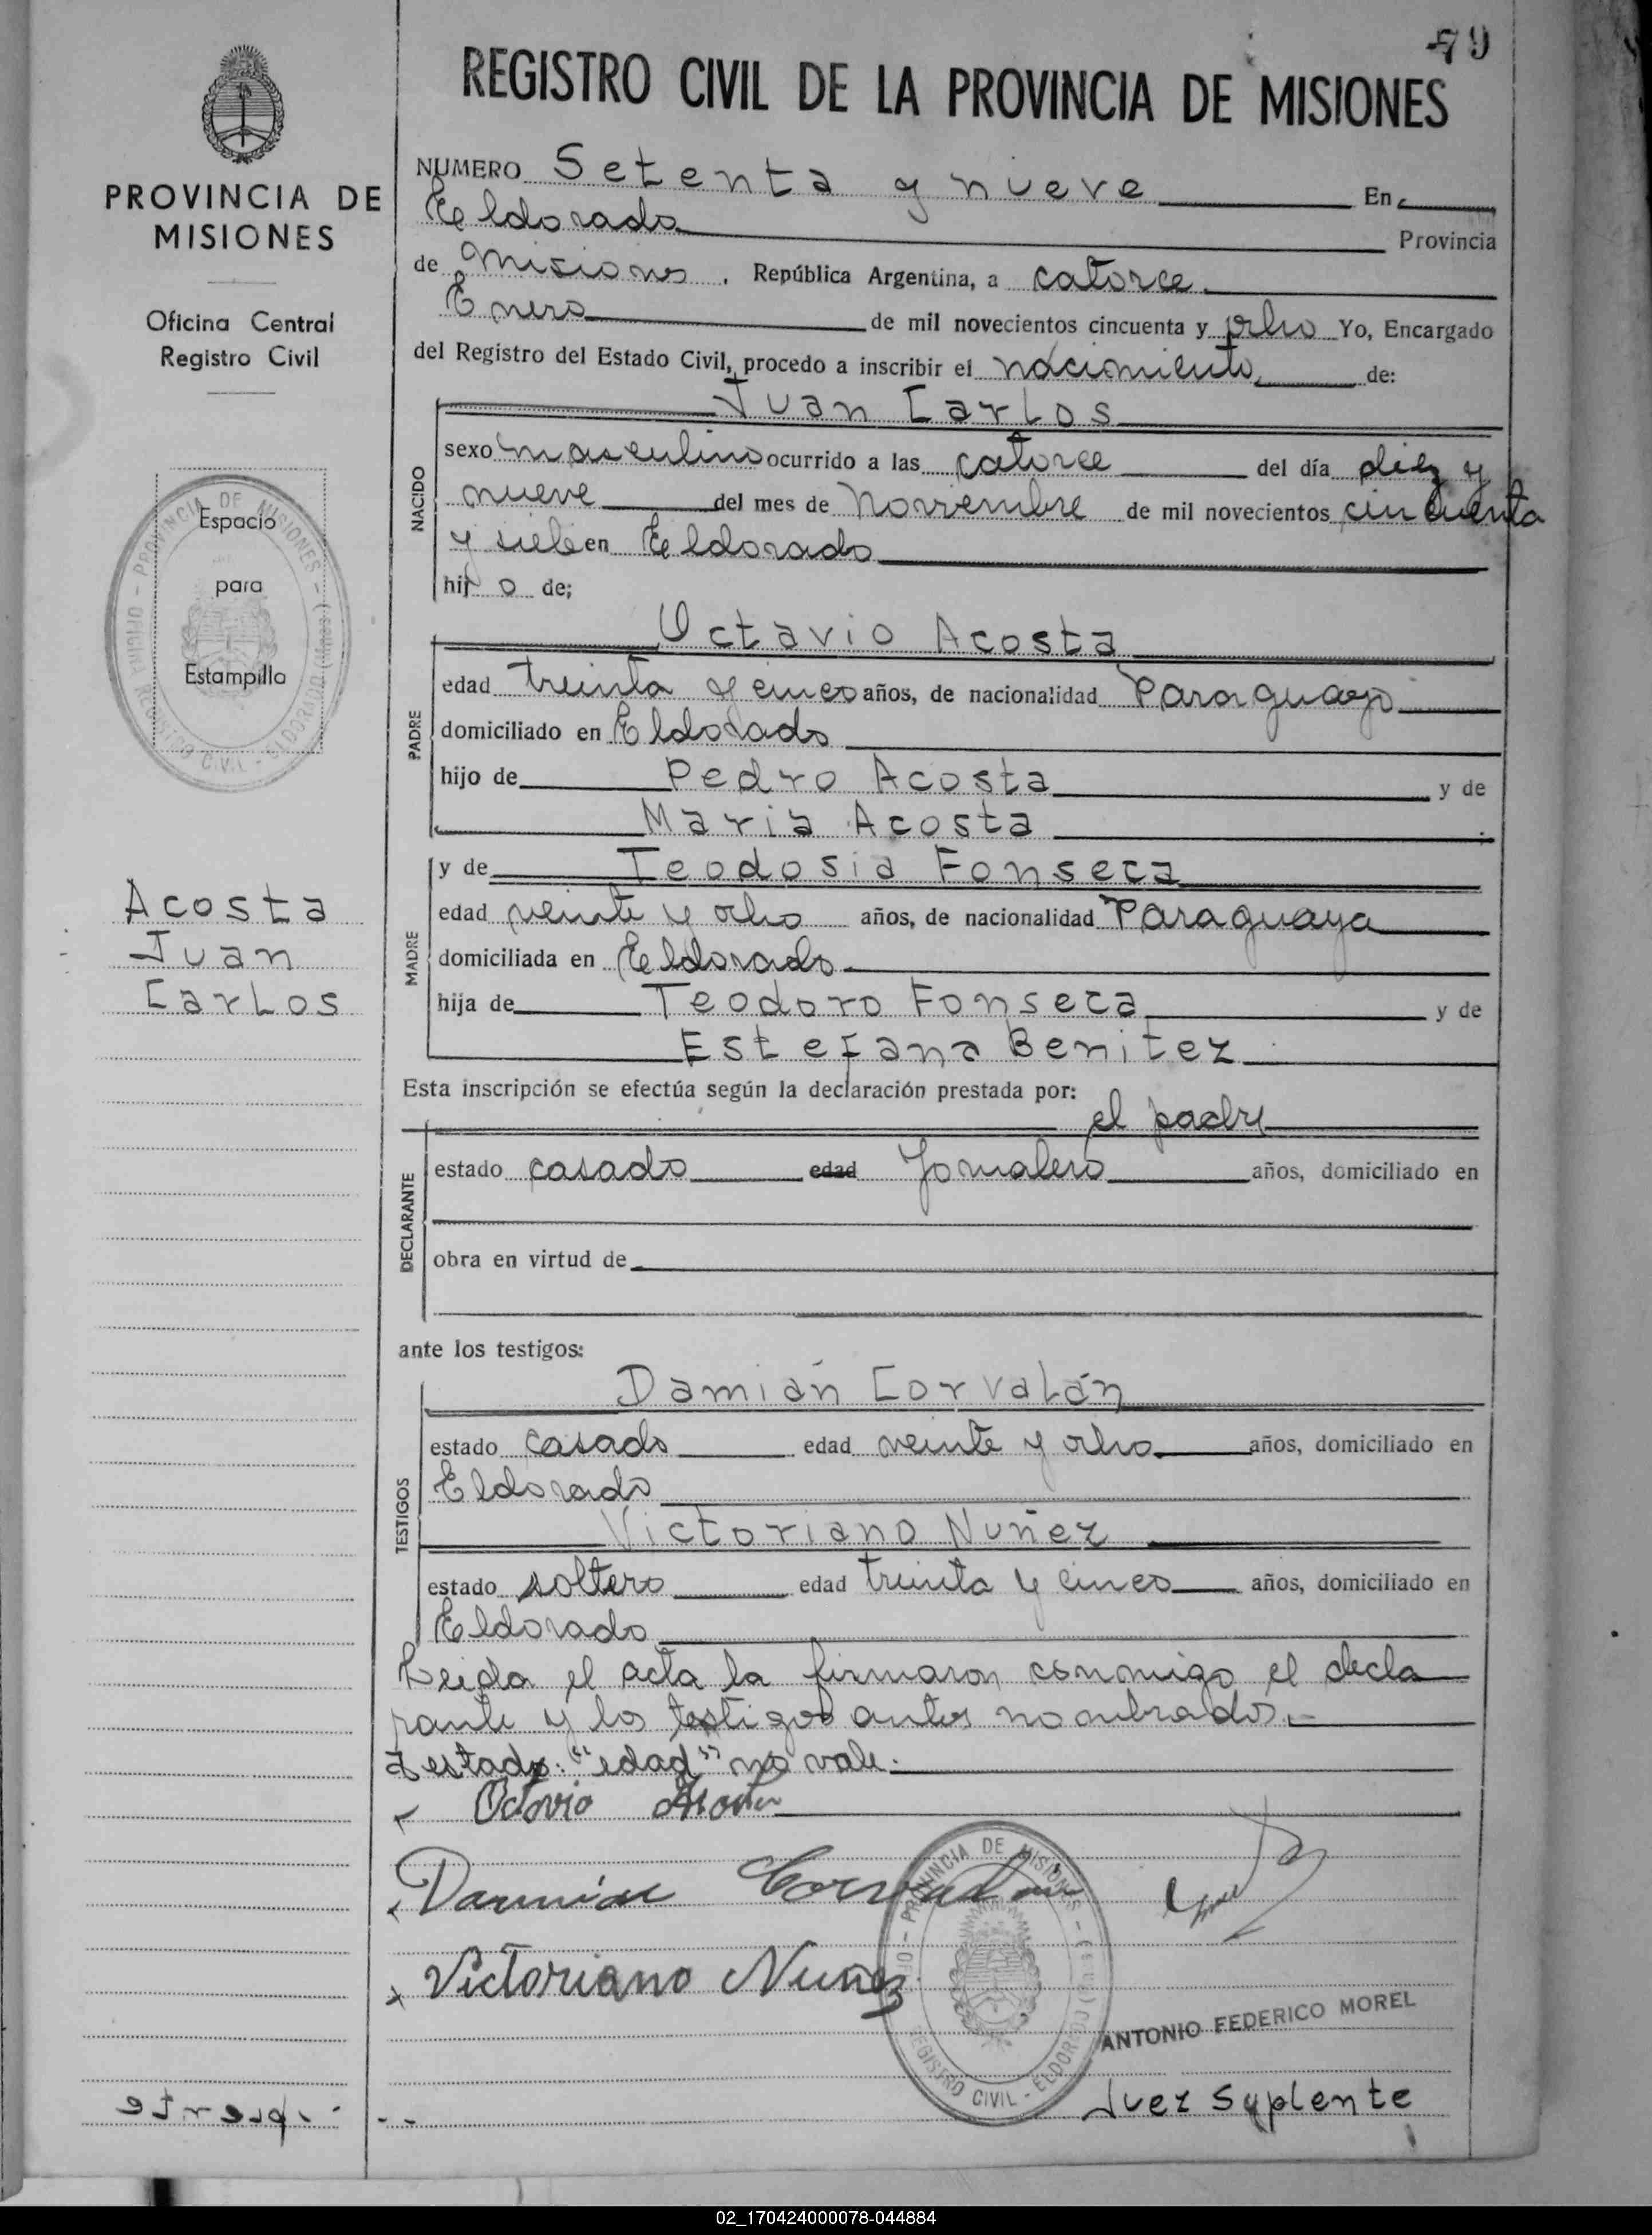 79
REGISTRO CIVIL DE LA PROVINCIA DE MISIONES
PROVINCIA DE
MISIONES
Oficina Central
Registro Civil
Espacio
para
Estampilla
PROVINCIA DE MISIONES - ELDORADO (Mnes.)
CIVIL
Acosta
Juan
Carlos
NUMERO Setenta y nueve En
Eldorado Provincia
de Misiones, República Argentina, a catorce
Enero de mil novecientos cincuenta y ocho Yo, Encargado
del Registro del Estado Civil, procedo a inscribir el nacimiento de:
NACIDO
Juan Carlos
sexo masculino ocurrido a las catorce del día diez y
nueve del mes de Noviembre de mil novecientos cincuenta
y siete en Eldorado
hij o de;
PADRE
Octavio Acosta
edad treinta y cinco años, de nacionalidad Paraguayo
domiciliado en Eldorado
hijo de Pedro Acosta y de
Maria Acosta
MADRE
y de Teodosia Fonseca
edad veinte y ocho años, de nacionalidad Paraguaya
domiciliada en Eldorado
hija de Teodoro Fonseca y de
Estefana Benitez
Esta inscripción se efectúa según la declaración prestada por:
el padre
DECLARANTE
estado casado edad Jornalero años, domiciliado en
obra en virtud de
ante los testigos:
TESTIGOS
Damián Corvalán
estado casado edad veinte y ocho años, domiciliado en
Eldorado
Victoriano Nuñez
estado soltero edad treinta y cinco años, domiciliado en
Eldorado
Leida el acta la firmaron conmigo el decla
rante y los testigos antes nombrados.-
Testado: "edad" no vale.
Octavio Acosta
Damián Corvalan
Victoriano Nuñez
PROVINCIA DE MISIONES
REGISTRO CIVIL - ELDORADO (Mnes.)
ANTONIO FEDERICO MOREL
Juez Suplente
02_170424000078-044884